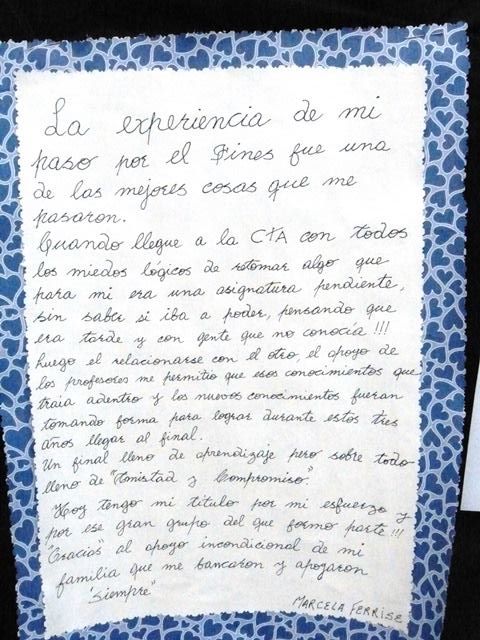 La experiencia de mi
paso por el Fines fue una
de las mejores cosas que me
pasaron.
Cuando llegue a la CTA con todos
los miedos lógicos de retomar algo que
para mi era una asignatura pendiente,
sin saber si iba a poder, pensando que
era tarde y con gente que no conocía!!!
Luego el relacionarse con el otro, el apoyo de
los profesores me permitio que esos conocimientos que
traia adentro y los nuevos conocimientos fueran
tomando forma para lograr durante estos tres
años llegar al final.
Un final lleno de aprendizaje pero sobre todo
lleno de "Amistad y Compromiso".
Hoy tengo mi titulo por mi esfuerzo y
por ese gran grupo del que formo parte!!!
"Gracias" al apoyo incondicional de mi
familia que me bancaron y apoyaron
"siempre"
MARCELA FERRISE